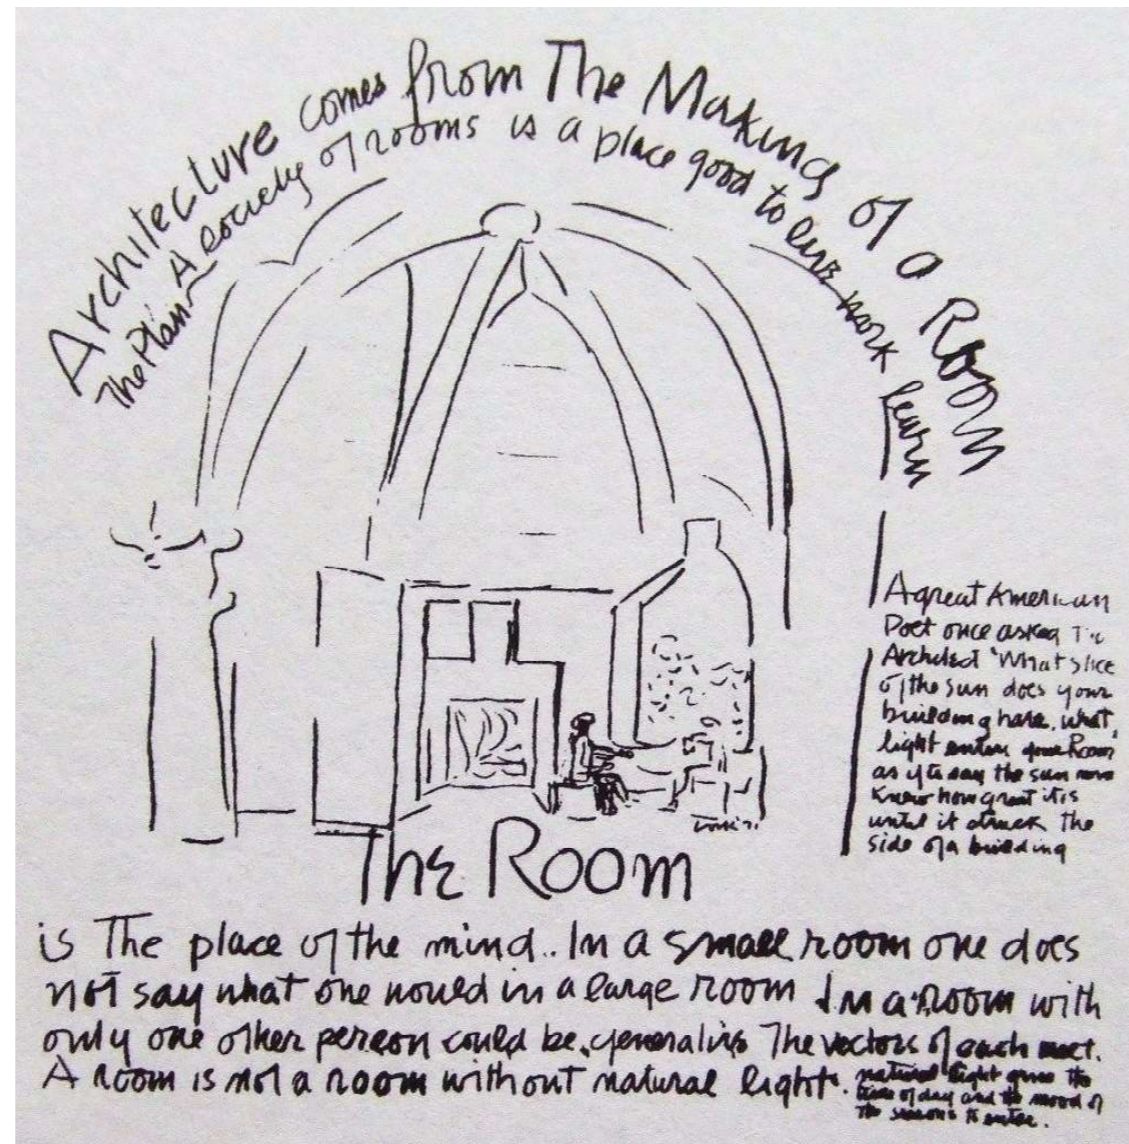 Architecture comes from The Making of a Room
The Plan A society of rooms is a place good to live work learn
A great American
Poet once asked The
Architect 'What slice
of the sun does your
building have. what
light enters your Room
as if to say the sun never
knew how great it is
until it struck the
side of a building
Louis K
The Room
is The place of the mind.. In a small room one does
not say what one would in a large room In a room with
only one other person could be generative The vectors of each meet.
A room is not a room without natural light.
natural light gives the
time of day and the mood of
the seasons to enter.